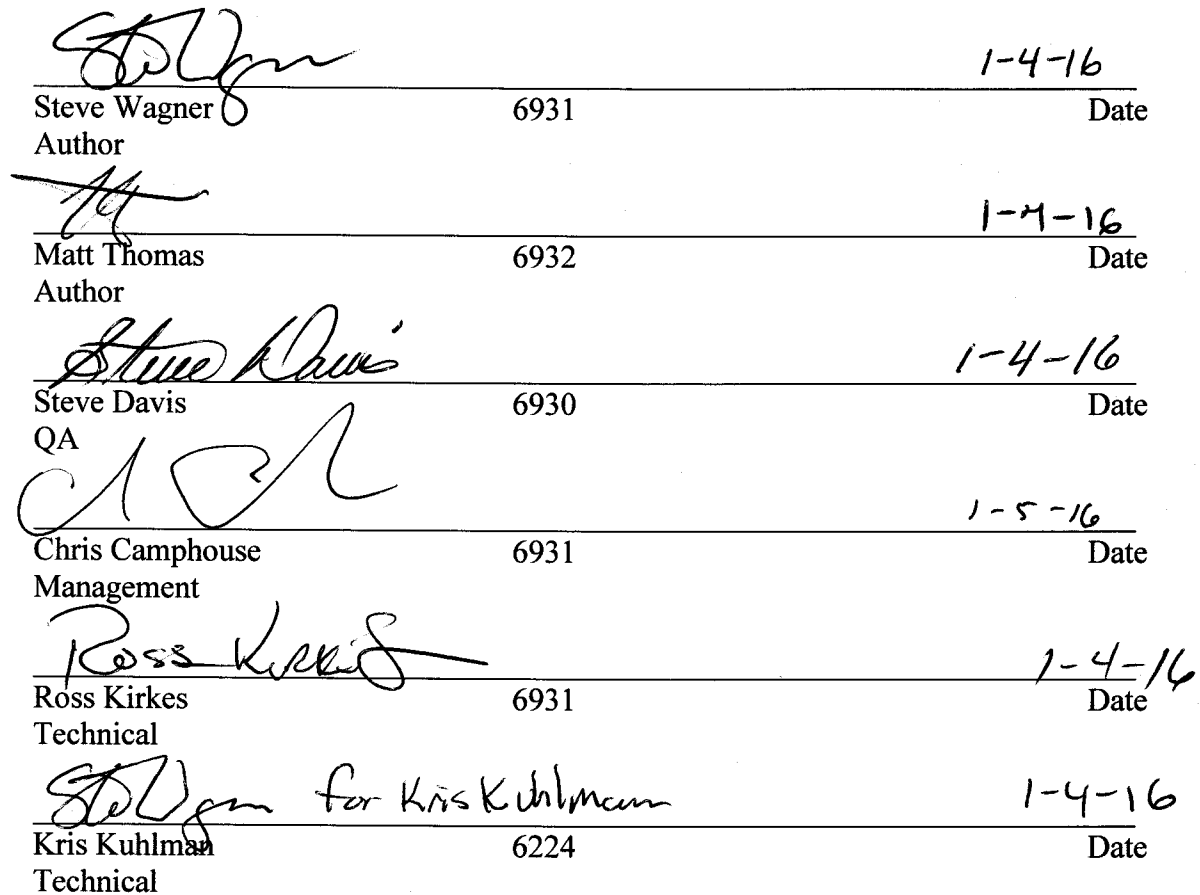 1-4-16
Steve Wagner 6931 Date
Author
1-4-16
Matt Thomas 6932 Date
Author
Steve Davis 1-4-16
Steve Davis 6930 Date
QA
1-5-16
Chris Camphouse 6931 Date
Management
Ross Kirkes 1-4-16
Ross Kirkes 6931 Date
Technical
for Kris Kuhlman 1-4-16
Kris Kuhlman 6224 Date
Technical